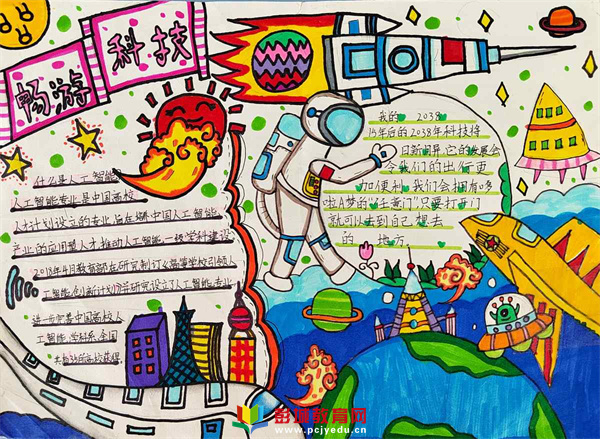 畅游科技
什么是人工智能
人工智能专业是中国高校
人才计划设立的专业,旨在
中国人工智能
产业的应用
人才推动人工智能一级学科建设
2018年4月教育部在研究制订《高等学校引领人
工智能创新计划》并研究设立人工智能专业
进一步完善中国高校人
工智能学科体系
我的 2038
15年后的2038年科技将
日新月异它的发展会
令我们的出行更
加便利我们会拥有哆
啦A梦的"任意门"只要打开门
就可以去到自己想去
的地方
彭城教育网
www.pcjyedu.cn